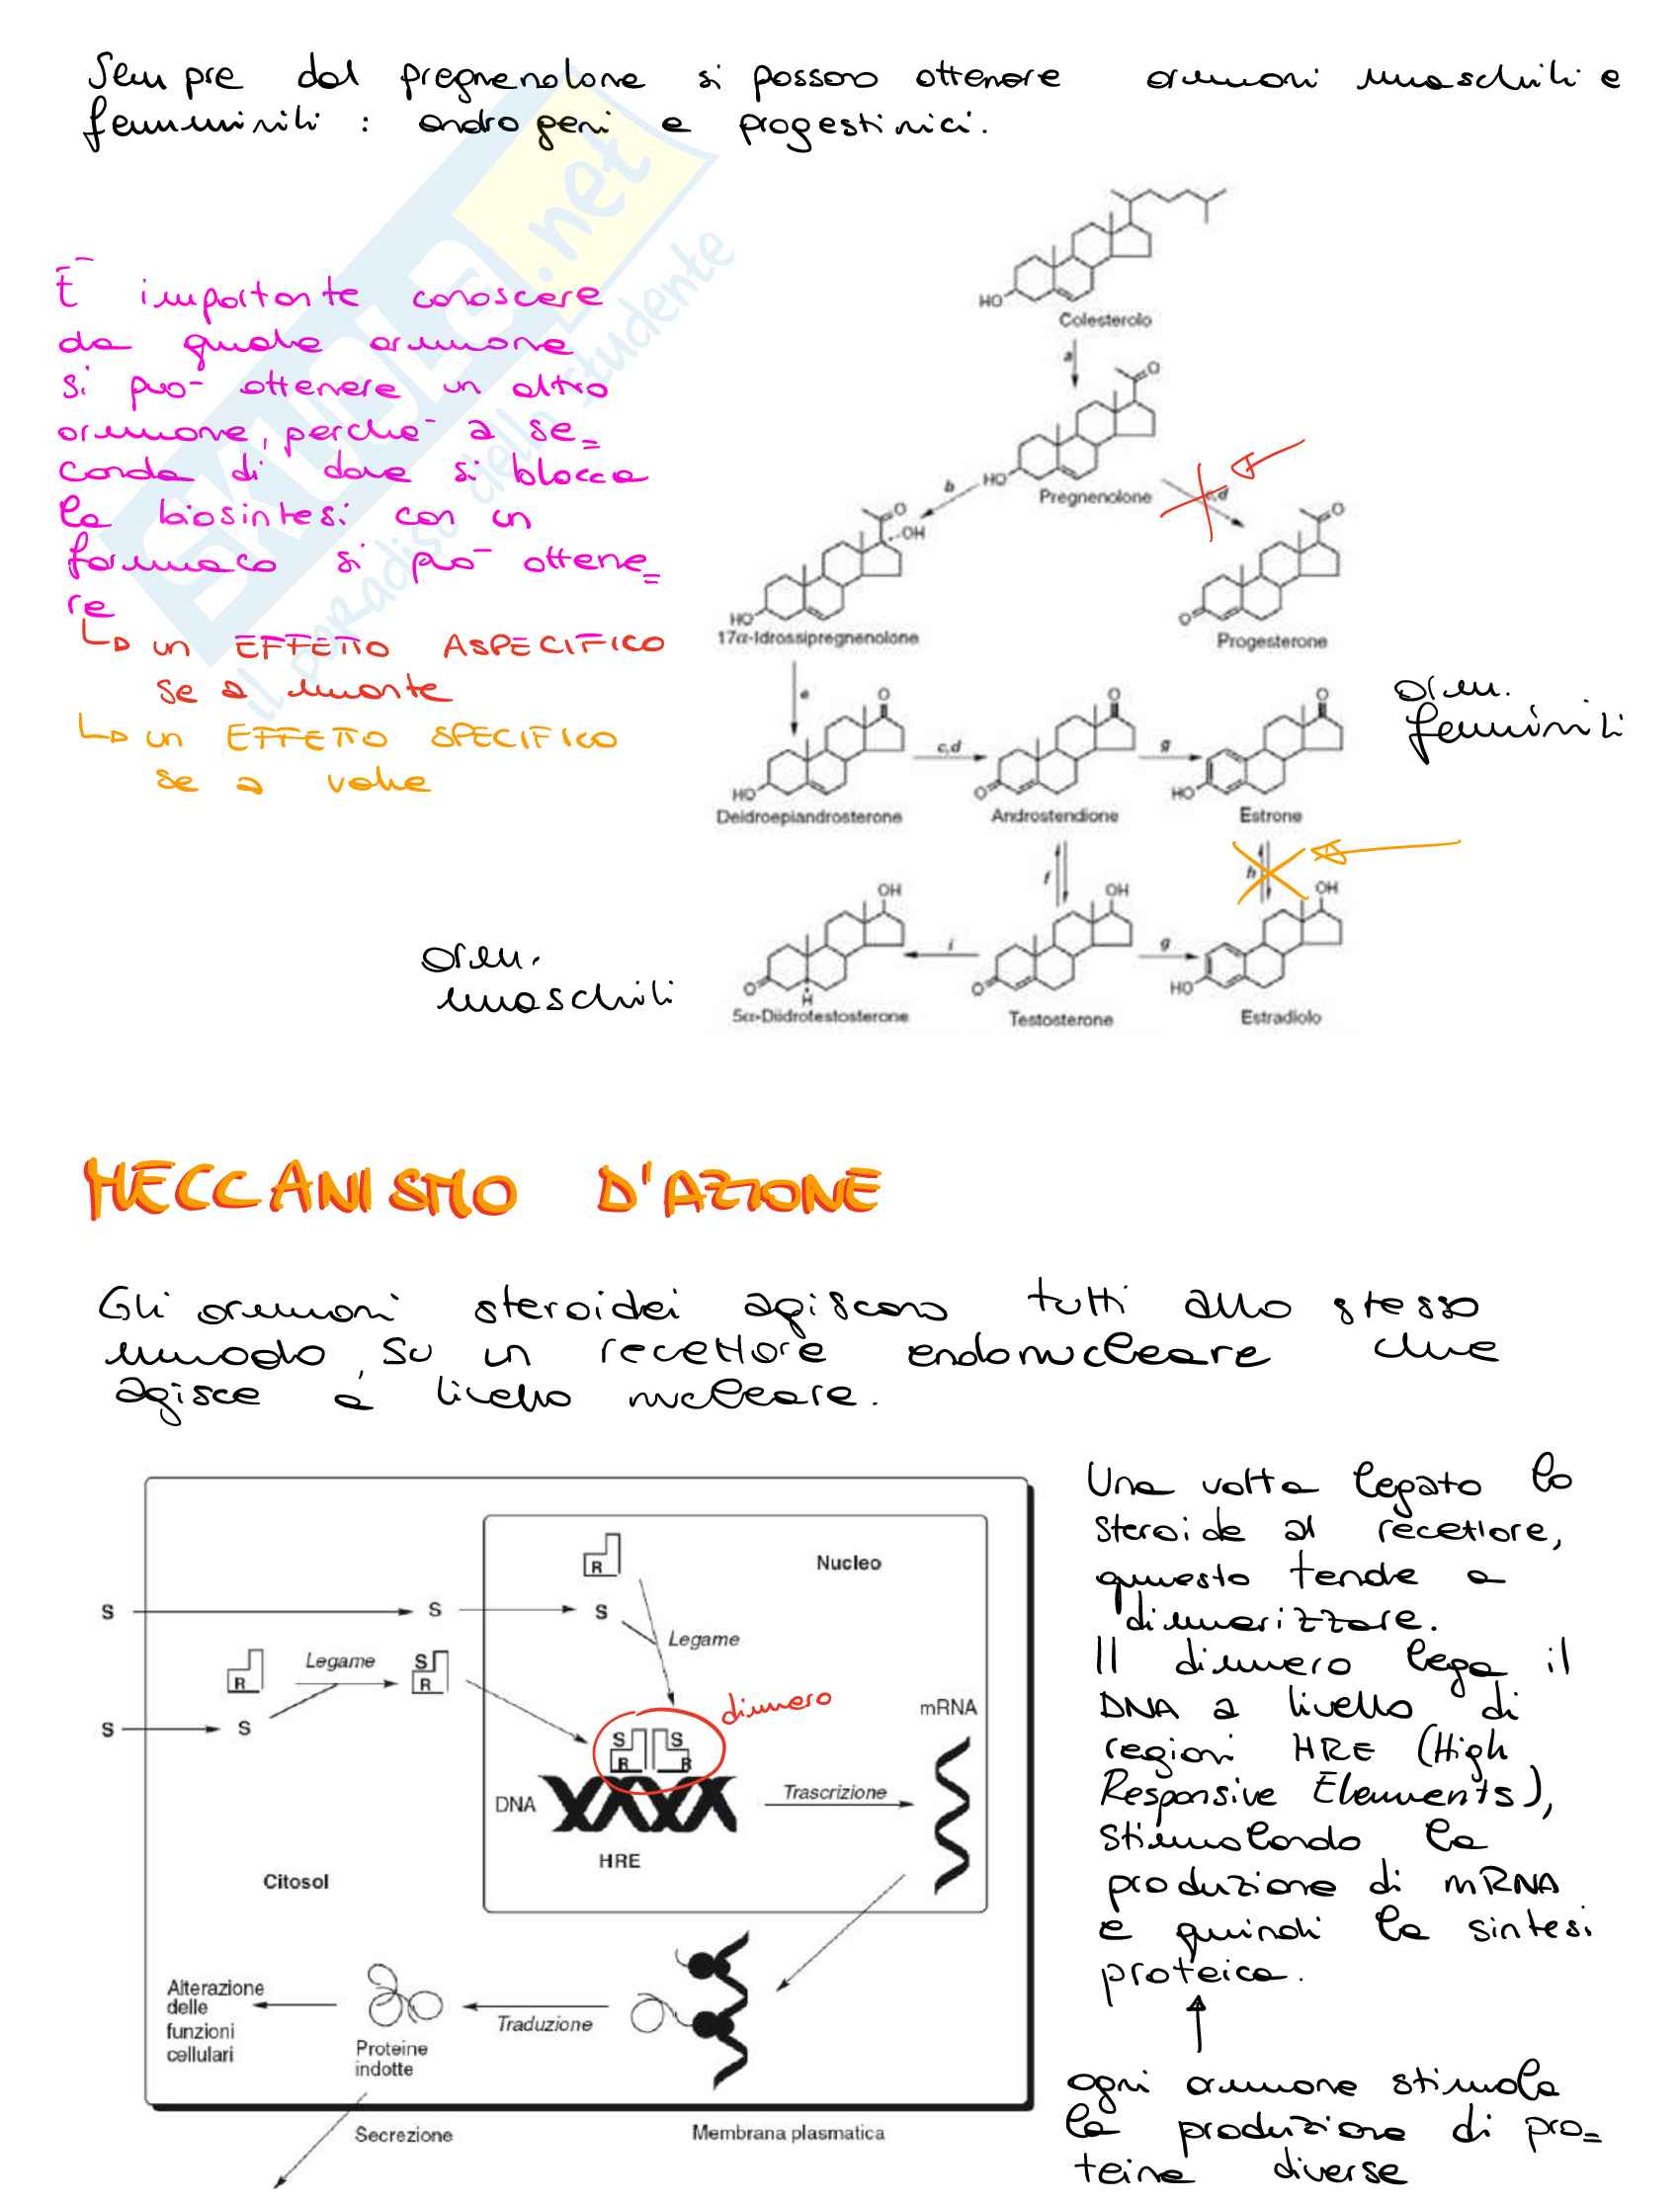 Sempre dal pregnenolone si possono ottenere ormoni maschili e
femminili : androgeni e progestinici.
SKUOLA.net
il paradiso dello studente
È importante conoscere
da quale ormone
si può ottenere un altro
ormone, perché a se=
conda di dove si blocca
la biosintesi con un
farmaco si può ottene=
re
↳ un EFFETTO ASPECIFICO
se a monte
↳ un EFFETTO SPECIFICO
se a valle
HO
Colesterolo
a
O
HO
Pregnenolone
b
c,d
O
OH
HO
17α-Idrossipregnenolone
O
O
Progesterone
e
O
HO
Deidroepiandrosterone
c,d
O
O
Androstendione
g
O
HO
Estrone
orm.
femminili
f
h
orm.
maschili
OH
O
H
5α-Diidrotestosterone
i
OH
O
Testosterone
g
OH
HO
Estradiolo
MECCANISMO D'AZIONE
Gli ormoni steroidei agiscono tutti allo stesso
modo, su un recettore endonucleare che
agisce a livello nucleare.
Nucleo
R
S
S
S
Legame
R
Legame
S
R
S
S
dimero
S
S
R
R
mRNA
DNA
Trascrizione
HRE
Citosol
Alterazione
delle
funzioni
cellulari
Proteine
indotte
Traduzione
Secrezione
Membrana plasmatica
Una volta legato lo
steroide al recettore,
questo tende a
dimerizzare.
Il dimero lega il
DNA a livello di
regioni HRE (High
Responsive Elements),
stimolando la
produzione di mRNA
e quindi la sintesi
proteica.
ogni ormone stimola
la produzione di pro=
teine diverse